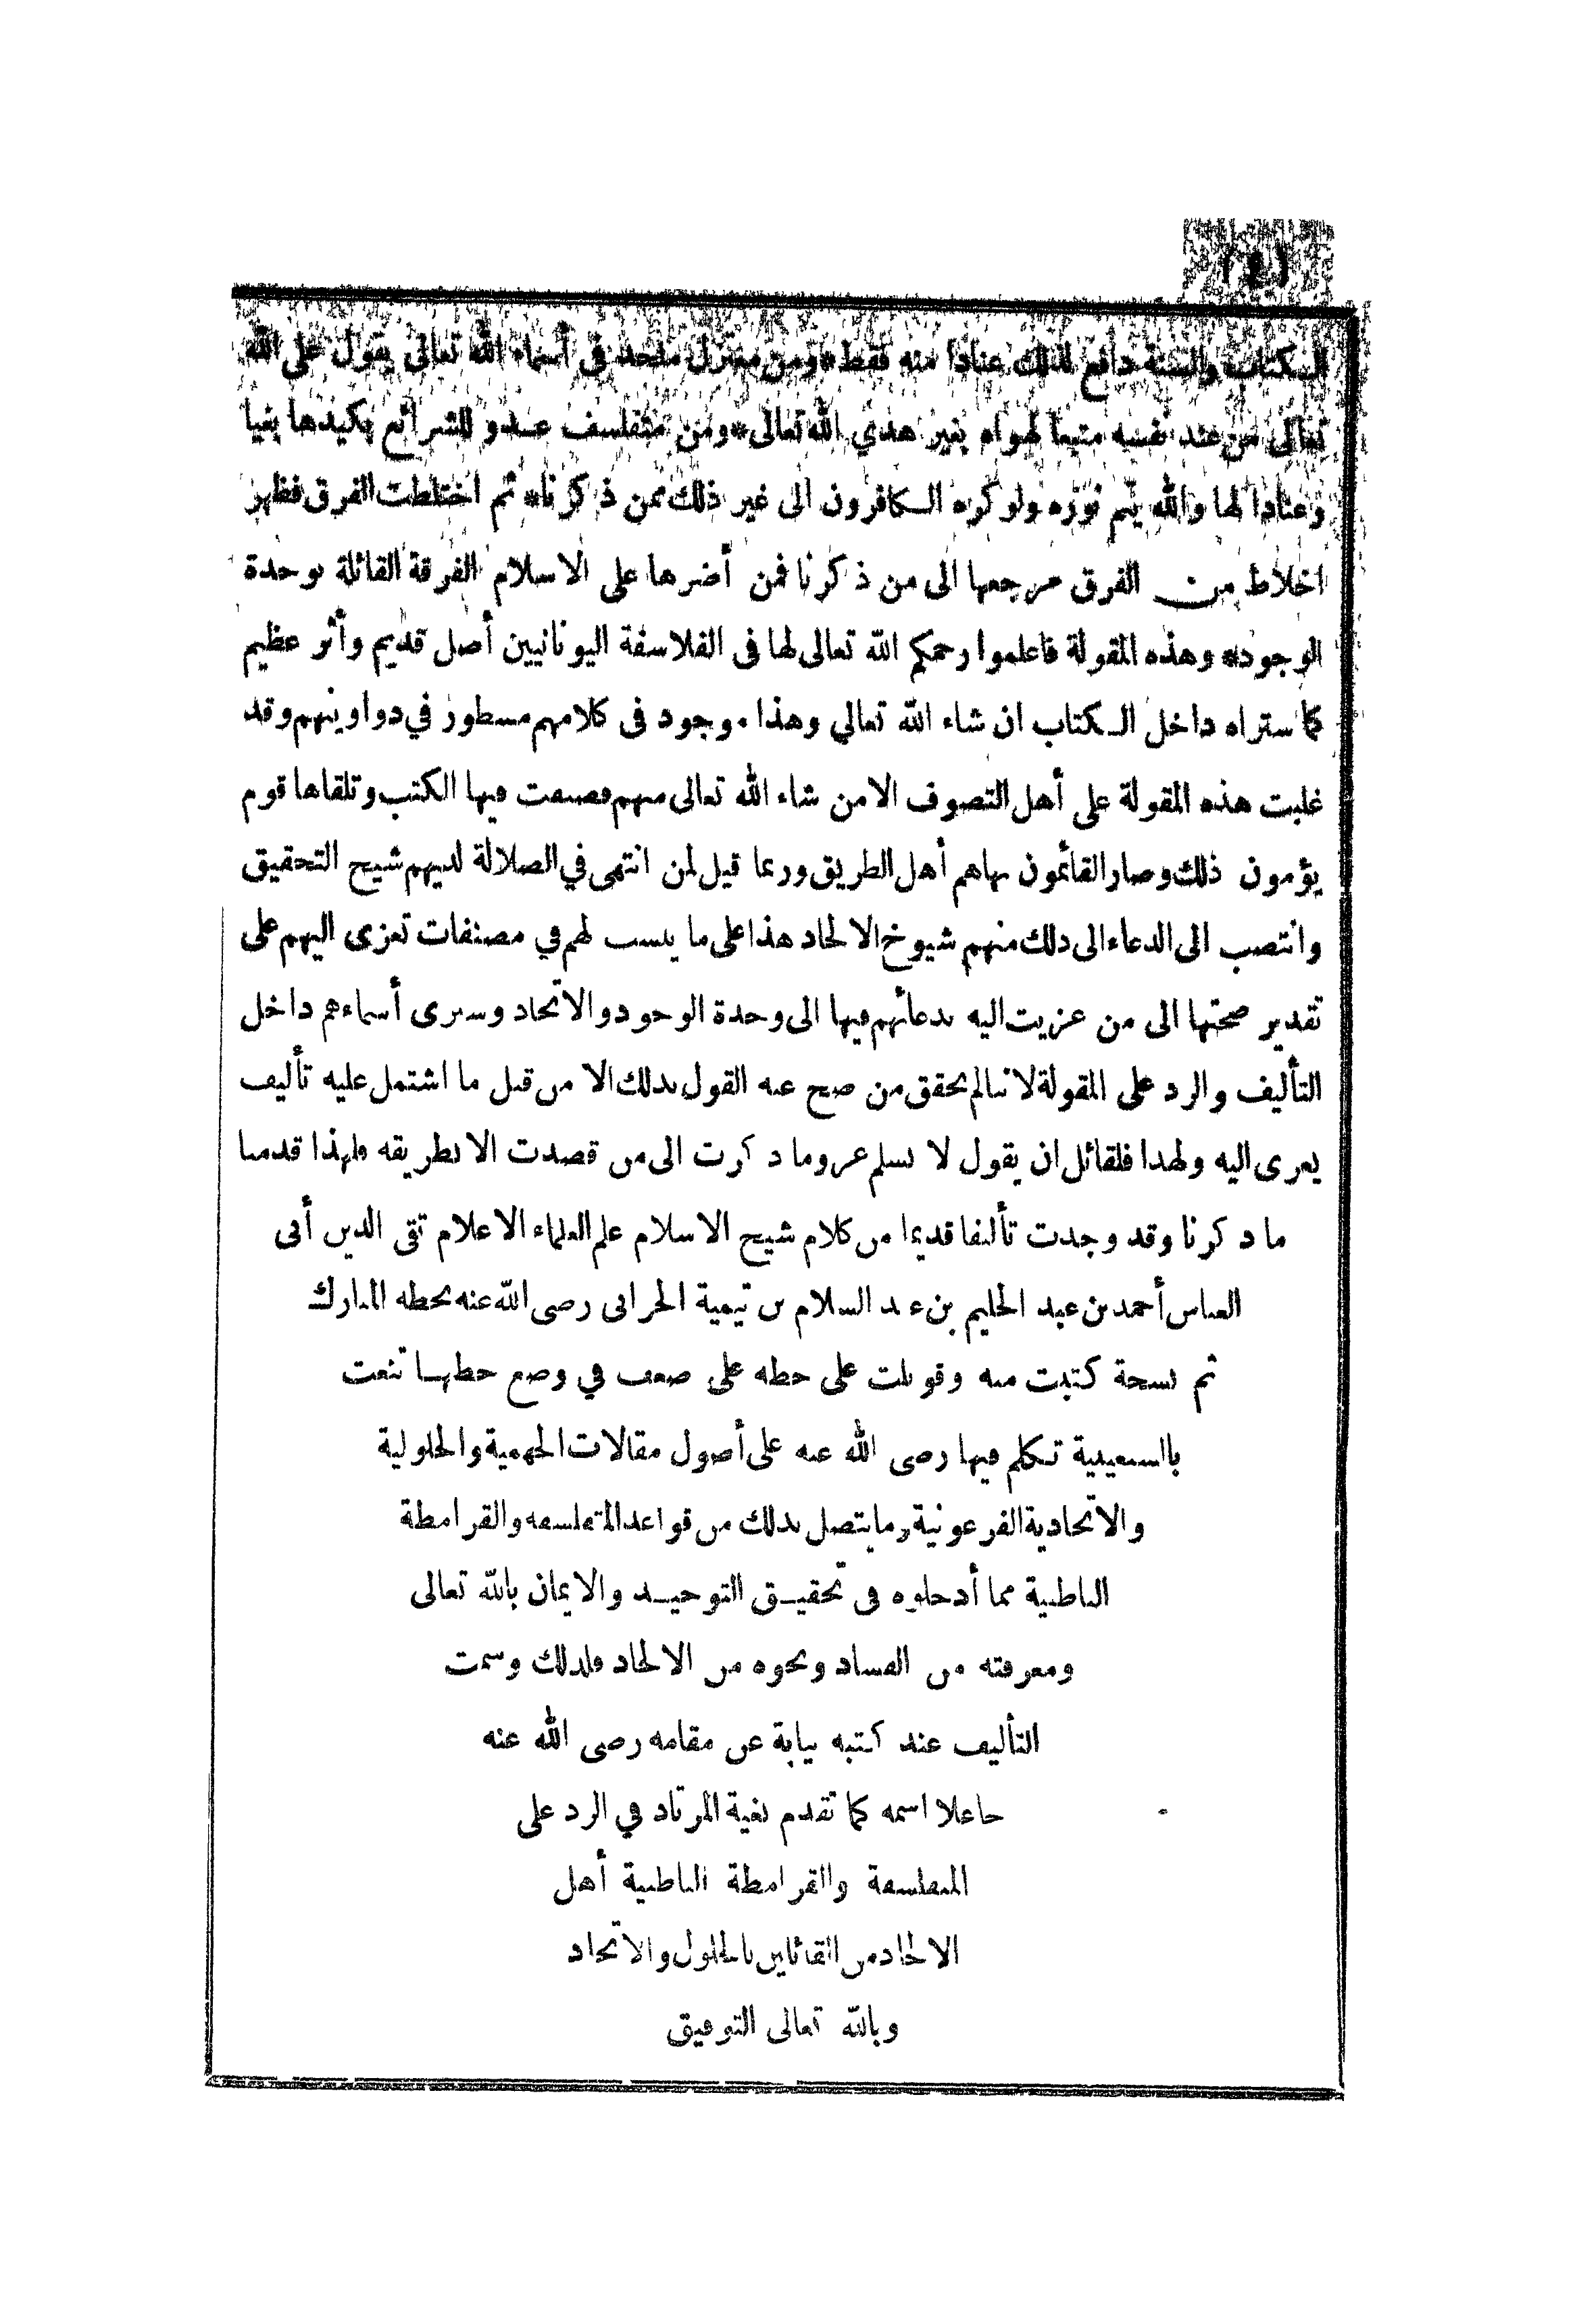 الكتاب والسنة دافع لذلك عنادا منه فقط * ومن معتزل ملحد فى أسماء الله تعالى يقول على الله
تعالى من عند نفسه متبعا لهواه بغير هدي الله تعالى * ومن متفلسف عدو للشرائع يكيدها بغيا
وعنادا لها والله يتم نوره ولو كره الكافرون الى غير ذلك ممن ذكرنا * ثم اختلطت الفرق فظهر
اخلاط من الفرق مرجعها الى من ذكرنا فمن أضرها على الاسلام الفرقة القائلة بوحدة
الوجود * وهذه المقولة فاعلموا رحمكم الله تعالى لها فى الفلاسفة اليونانيين أصل قديم وأثر عظيم
كما ستراه داخل الكتاب ان شاء الله تعالي وهذا موجود فى كلامهم مسطور في دواوينهم وقد
غلبت هذه المقولة على أهل التصوف الا من شاء الله تعالى منهم فصنفت فيها الكتب وتلقاها قوم
يؤمون ذلك وصار القائمون بها هم أهل الطريق وربما قيل لمن انتهى في الضلالة لديهم شيخ التحقيق
وانتصب الى الدعاء الى ذلك منهم شيوخ الالحاد هذا على ما ينسب لهم في مصنفات تعزى اليهم على
تقدير صحتها الى من عزيت اليه بدعائهم فيها الى وحدة الوجود والاتحاد وسترى أسماءهم داخل
التأليف والرد على المقولة لاننا لم نحقق من صح عنه القول بذلك الا من قبل ما اشتمل عليه تأليف
يعزى اليه ولهذا فلقائل ان يقول لا نسلم عزو ما ذكرت الى من قصدت الا بطريقه فلهذا قدمنا
ما ذكرنا وقد وجدت تأليفا قديما من كلام شيخ الاسلام علم العلماء الاعلام تقى الدين أبى
العباس أحمد بن عبد الحليم بن عبد السلام بن تيمية الحرانى رضى الله عنه بخطه المبارك
ثم نسخة كتبت منه وقوبلت على خطه على ضعف في وضع خطها تنعت
بالسبعينية تكلم فيها رضى الله عنه على أصول مقالات الجهمية والحلولية
والاتحادية الفرعونية وما يتصل بذلك من قواعد المتفلسفه والقرامطة
الباطنية مما أدخلوه فى تحقيق التوحيد والايمان بالله تعالى
ومعرفته من الفساد ونحوه من الالحاد فلذلك وسمت
التأليف عند كتبه نيابة عن مقامه رضى الله عنه
جاعلا اسمه كما تقدم بغية المرتاد في الرد على
المتفلسفة والقرامطة الباطنية أهل
الالحاد من القائلين بالحلول والاتحاد
وبالله تعالى التوفيق